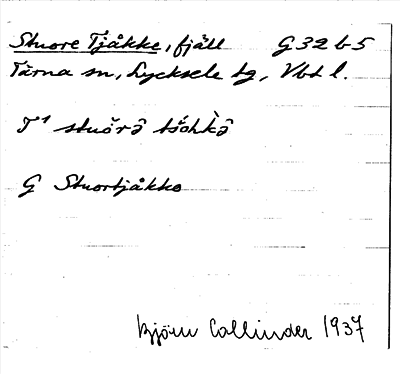 Stuore Tjåkke, fjäll G 32 b 5
Tärna sn, Lycksele tg, Vbt l.
T¹ stuŏrə̂ tšåhkə̂
G Stuortjåkko
Björn Collinder 1937